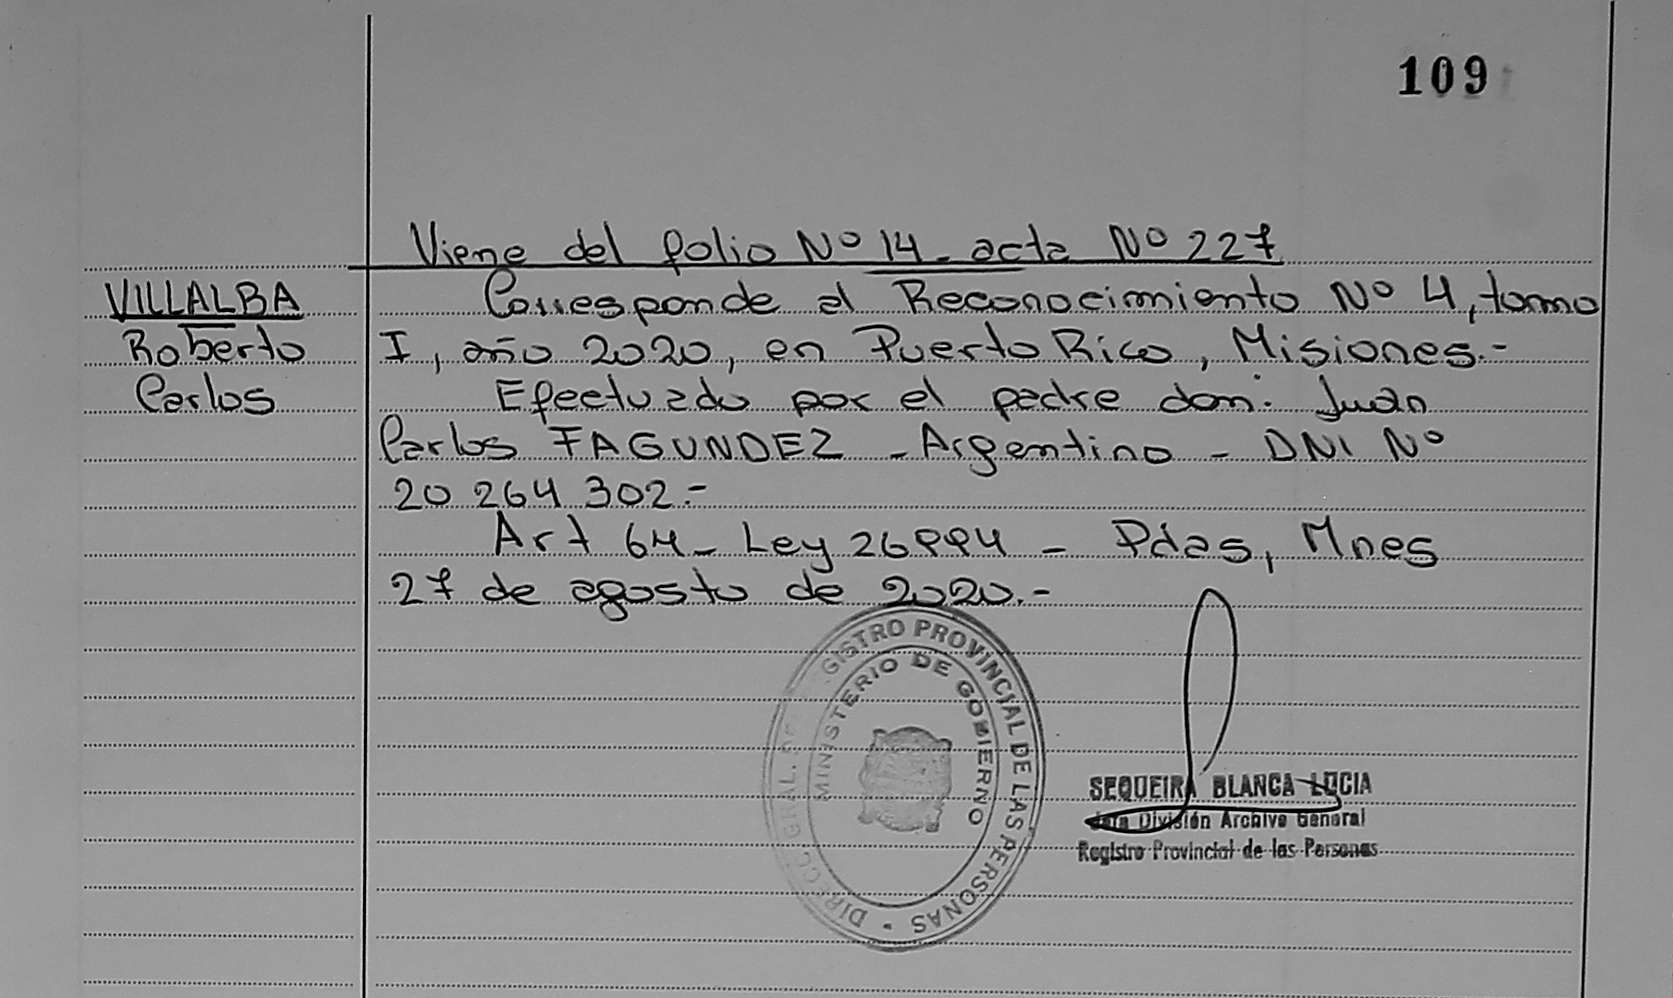 109
Viene del folio Nº 14 - acta Nº 227
VILLALBA
Roberto
Carlos
Corresponde al Reconocimiento Nº 4, tomo
I, año 2020, en Puerto Rico, Misiones.-
Efectuado por el padre don: Juan
Carlos FAGUNDEZ - Argentino - DNI Nº
20 264 302.-
Art 64 - Ley 26994 - Pdas, Mnes
27 de agosto de 2020.-
DIRECC. GRAL. DE GISTRO PROVINCIAL DE LAS PERSONAS
MINISTERIO DE GOBIERNO
SEQUEIRA BLANCA LUCIA
Jefa División Archivo General
Registro Provincial de las Personas